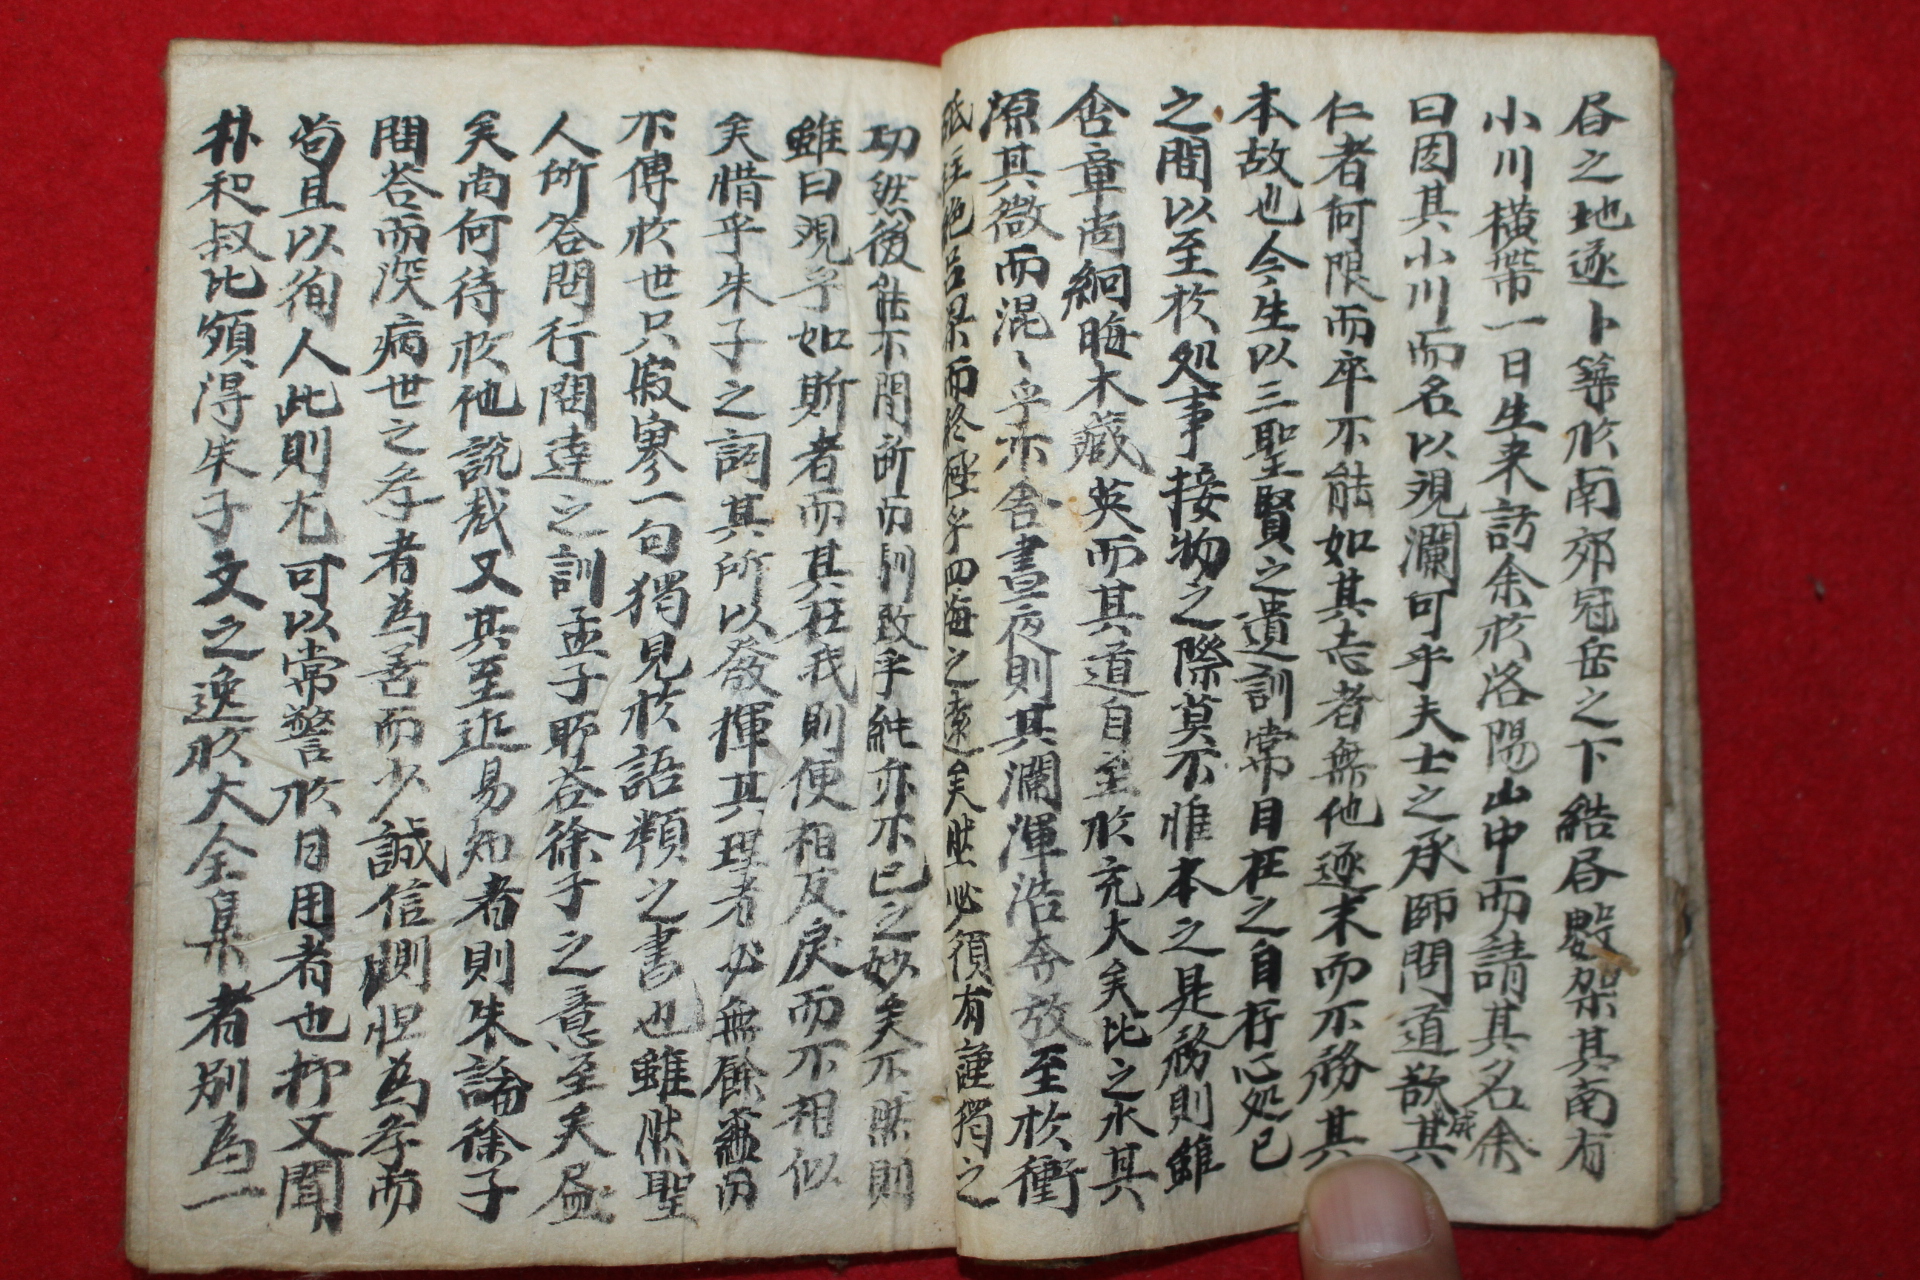 居之地遂卜築於南郊冠岳之下結居數架其南有
小川橫帶一日生来訪余於洛陽山中而請其名余
曰因其小川而名以观瀾可乎夫士之承師問道欲成其
仁者何限而卒不能如其志者無他逐末而不務其
本故也今生以三聖賢之遺訓常目在之自存心処已
之間以至於処事接物之際莫不惟本之是務則雖
含章尚絅晦木藏英而其道自至於充大矣比之水其
源其微而混〻乎亦舍晝夜則其瀾渾浩奔放至於衝
砥柱絶呂梁而終極乎四海之遠矣然必須有謹獨之
功然後能不間所而馴致乎純亦不已之妙矣不然則
雖曰观乎如斯者而其在我則便相反戾而不相似
矣惜乎朱子之詞其所以發揮其理者必無餘蘊而
不傳於世只寂寥一句獨見於語類之書也雖然聖
人所答問行闊達之訓孟子耶答徐子之意至矣盡
矣尚何待於他説哉又其至近易知者則朱論徐子
問答而深病世之孝者為善而少誠信惻怛為孝而
苟且以徇人此則尤可以常警於日用者也抑又聞
朴和叔比頗得朱子文之逸於大全集者别為一